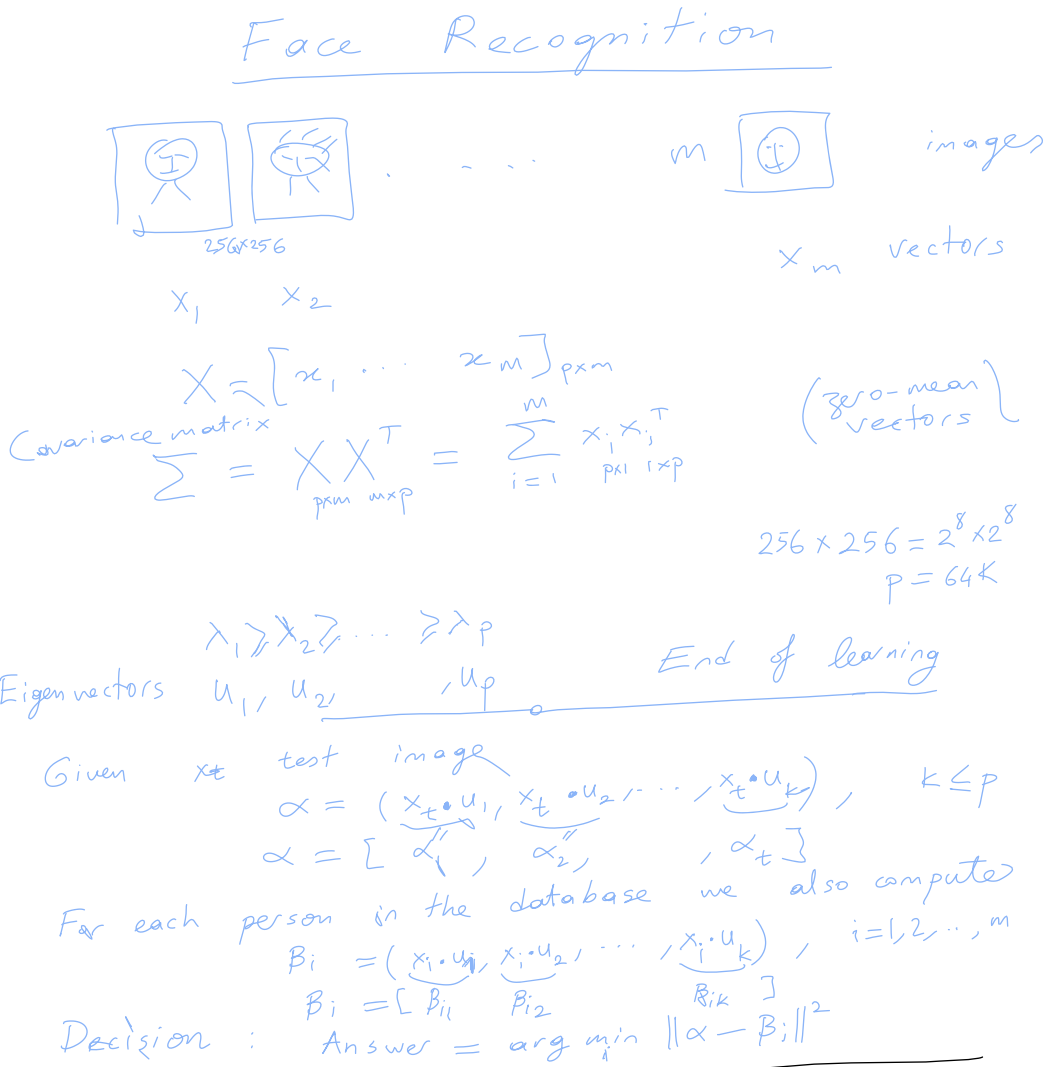 Face Recognition
... m images
256x256
x_m vectors
x_1 x_2
X = [x_1 ... x_m]_{p×m}
(zero-mean vectors)
Covariance matrix
Σ = X X^T = Σ_{i=1}^{m} x_i x_i^T
p×m m×p p×1 1×p
256 × 256 = 2^8 × 2^8
p = 64K
λ_1 ≥ λ_2 ≥ ... ≥ λ_p
End of learning
Eigenvectors u_1, u_2, , u_p
Given x_t test image
α = (x_t • u_1, x_t • u_2, ..., x_t • u_k), k ≤ p
α = [ α_1, α_2, , α_t ]
For each person in the database we also compute
B_i = (x_i • u_1, x_i • u_2, ..., x_i • u_k), i=1,2,..,m
B_i = [ B_{i1} B_{i2} B_{ik} ]
Decision : Answer = arg min_i ||α − B_i||^2